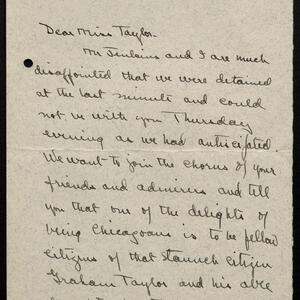 Dear Miss Taylor-
Mr Jenkins and I are much
disappointed that we were detained
at the last minute and could
not be with you Thursday
evening as we had anticipated.
We want to join the chorus of your
friends and admirers and tell
you that one of the delights of
being Chicagoans is to be fellow
citizens of that staunch citizen
Graham Taylor and his able